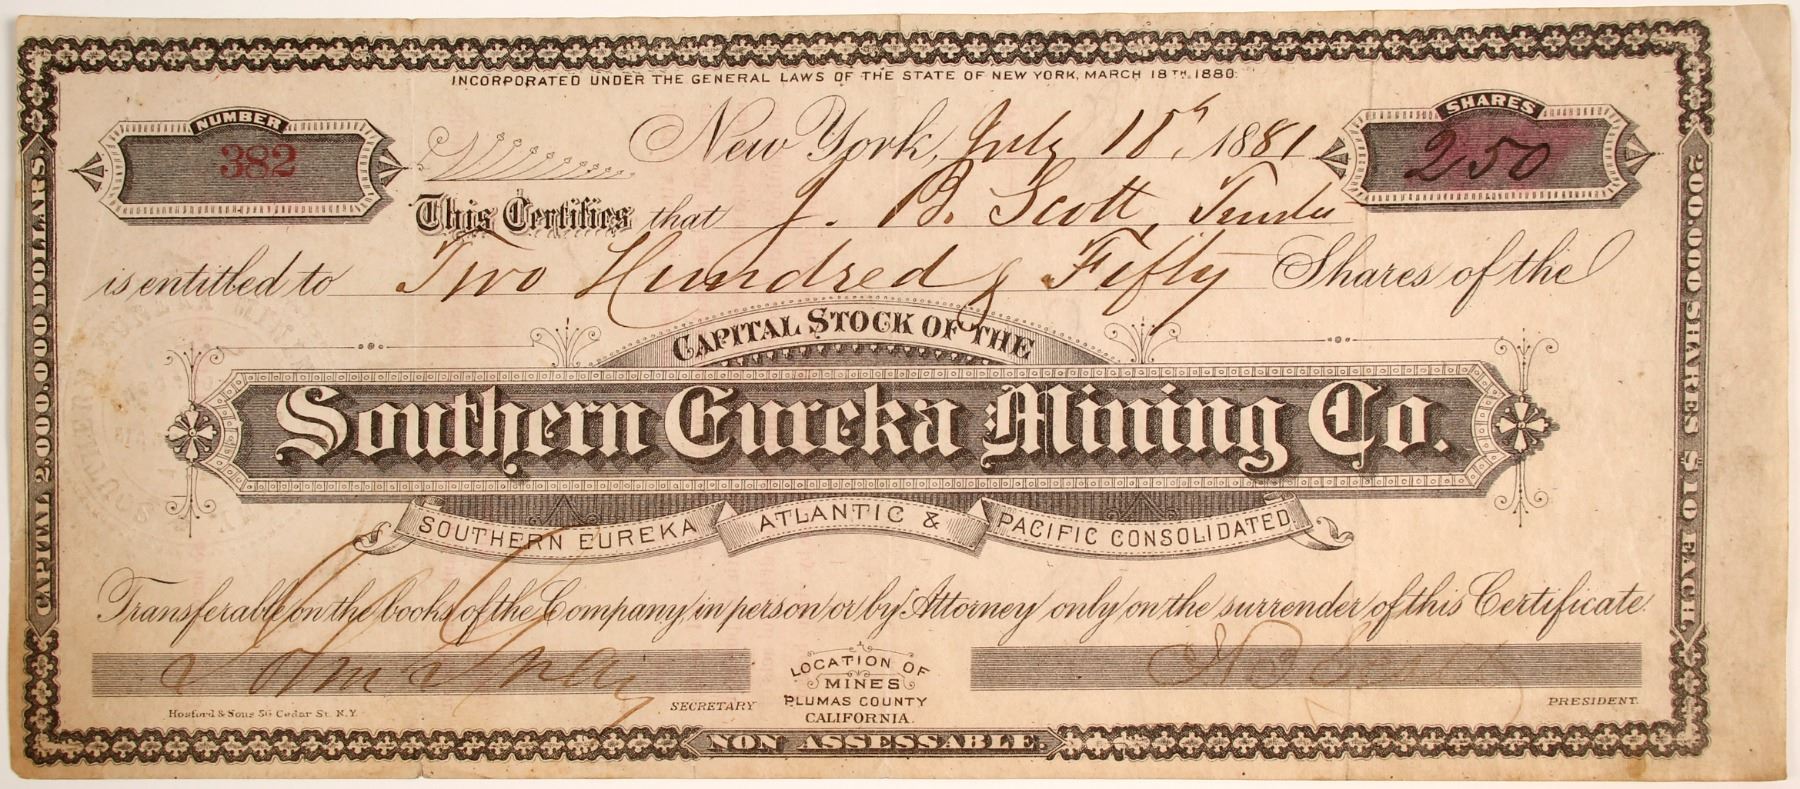 INCORPORATED UNDER THE GENERAL LAWS OF THE STATE OF NEW YORK, MARCH 18TH. 1880.
NUMBER
382
New York, July 18th, 1881
SHARES
250
This Certifies that J. B. Scott, Trustee
is entitled to Two Hundred & Fifty Shares of the
CAPITAL STOCK OF THE
Southern Eureka Mining Co.
SOUTHERN EUREKA ATLANTIC & PACIFIC CONSOLIDATED
Transferable on the books of the Company, in person or by Attorney only on the surrender of this Certificate.
SECRETARY
LOCATION OF
MINES
PLUMAS COUNTY
CALIFORNIA.
PRESIDENT.
Hosford & Sons 56 Cedar St. N.Y.
NON ASSESSABLE.
CAPITAL 2.000.000 DOLLARS.
200.000 SHARES $10 EACH.